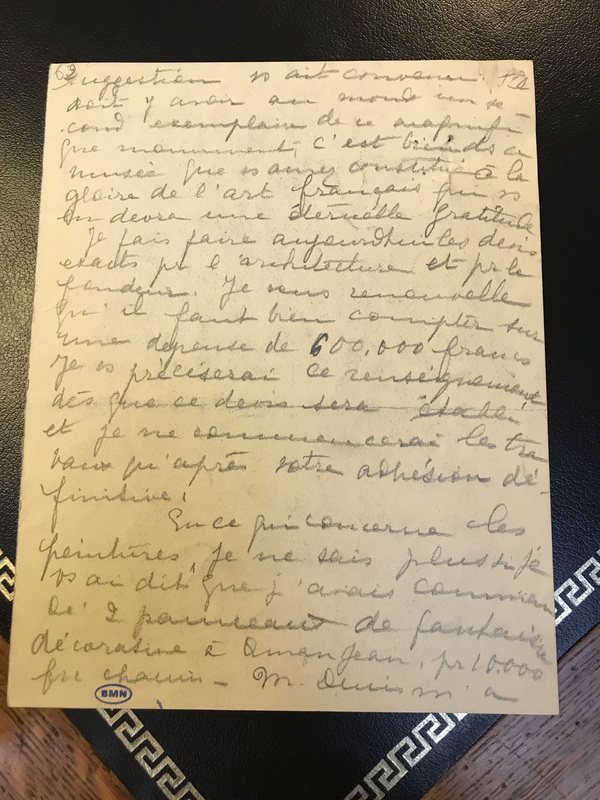 63
suggestion vs ait convenu. S'il
doit y avoir au monde un se-
cond exemplaire de ce magnifi
que monument, c'est bien ds ce
musée que vs aurez constitué à la
gloire de l'art français qui vs
en devra une éternelle gratitude
Je fais faire aujourd'hui les devis
exacts pr l'architecture et pr le
fondeur. Je vous renouvelle
qu'il faut bien compter sur
une dépense de 600.000 francs
Je vs préciserai ce renseignement
dès que ce devis sera établi
et je ne commencerai les tra
vaux qu'après votre adhésion dé-
finitive.
En ce qui concerne les
peintures je ne sais plus si je
vs ai dit que j'avais comman
dé 2 panneaux de fantaisie
décorative à Aman Jean, pr 10.000
frs chacun - M. Denis m'a
BMN